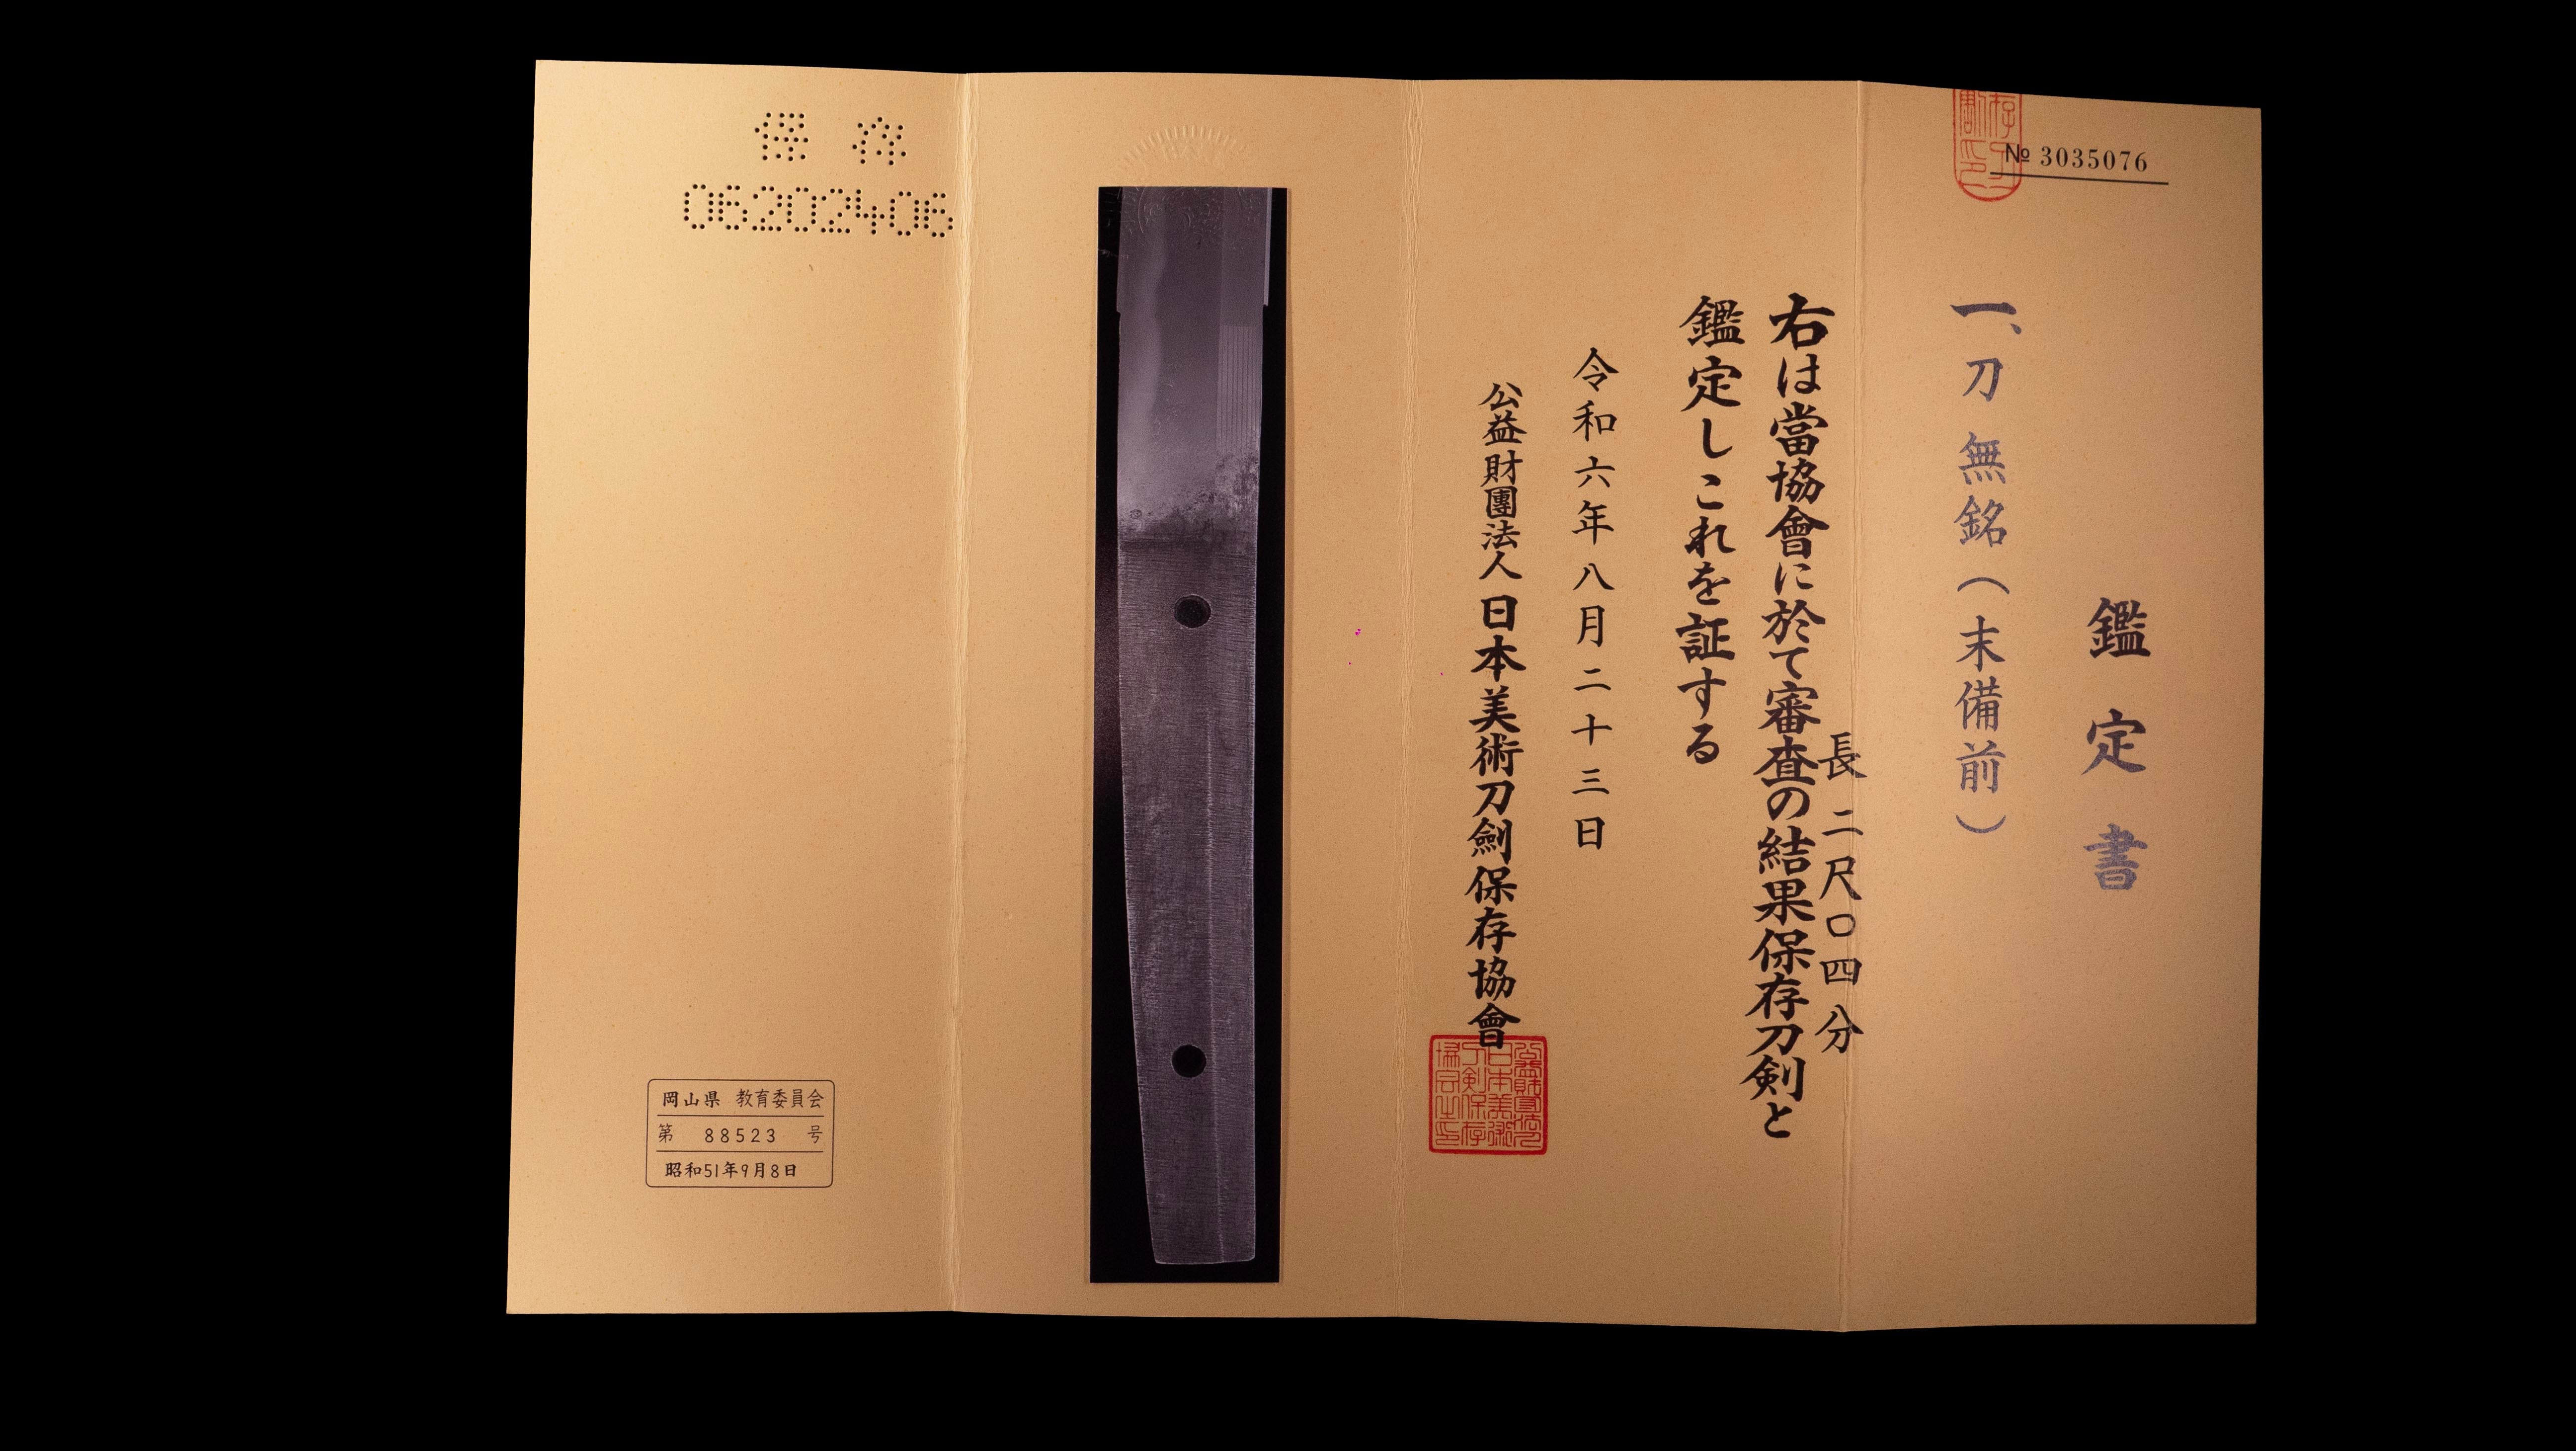 № 3035076
鑑定書
一、刀 無銘（末備前）
長 二尺〇四分
右は當協會に於て審査の結果保存刀剣と
鑑定しこれを証する
令和六年八月二十三日
公益財團法人 日本美術刀劍保存協會
保存
06202406
岡山県 教育委員会
第 88523 号
昭和51年9月8日